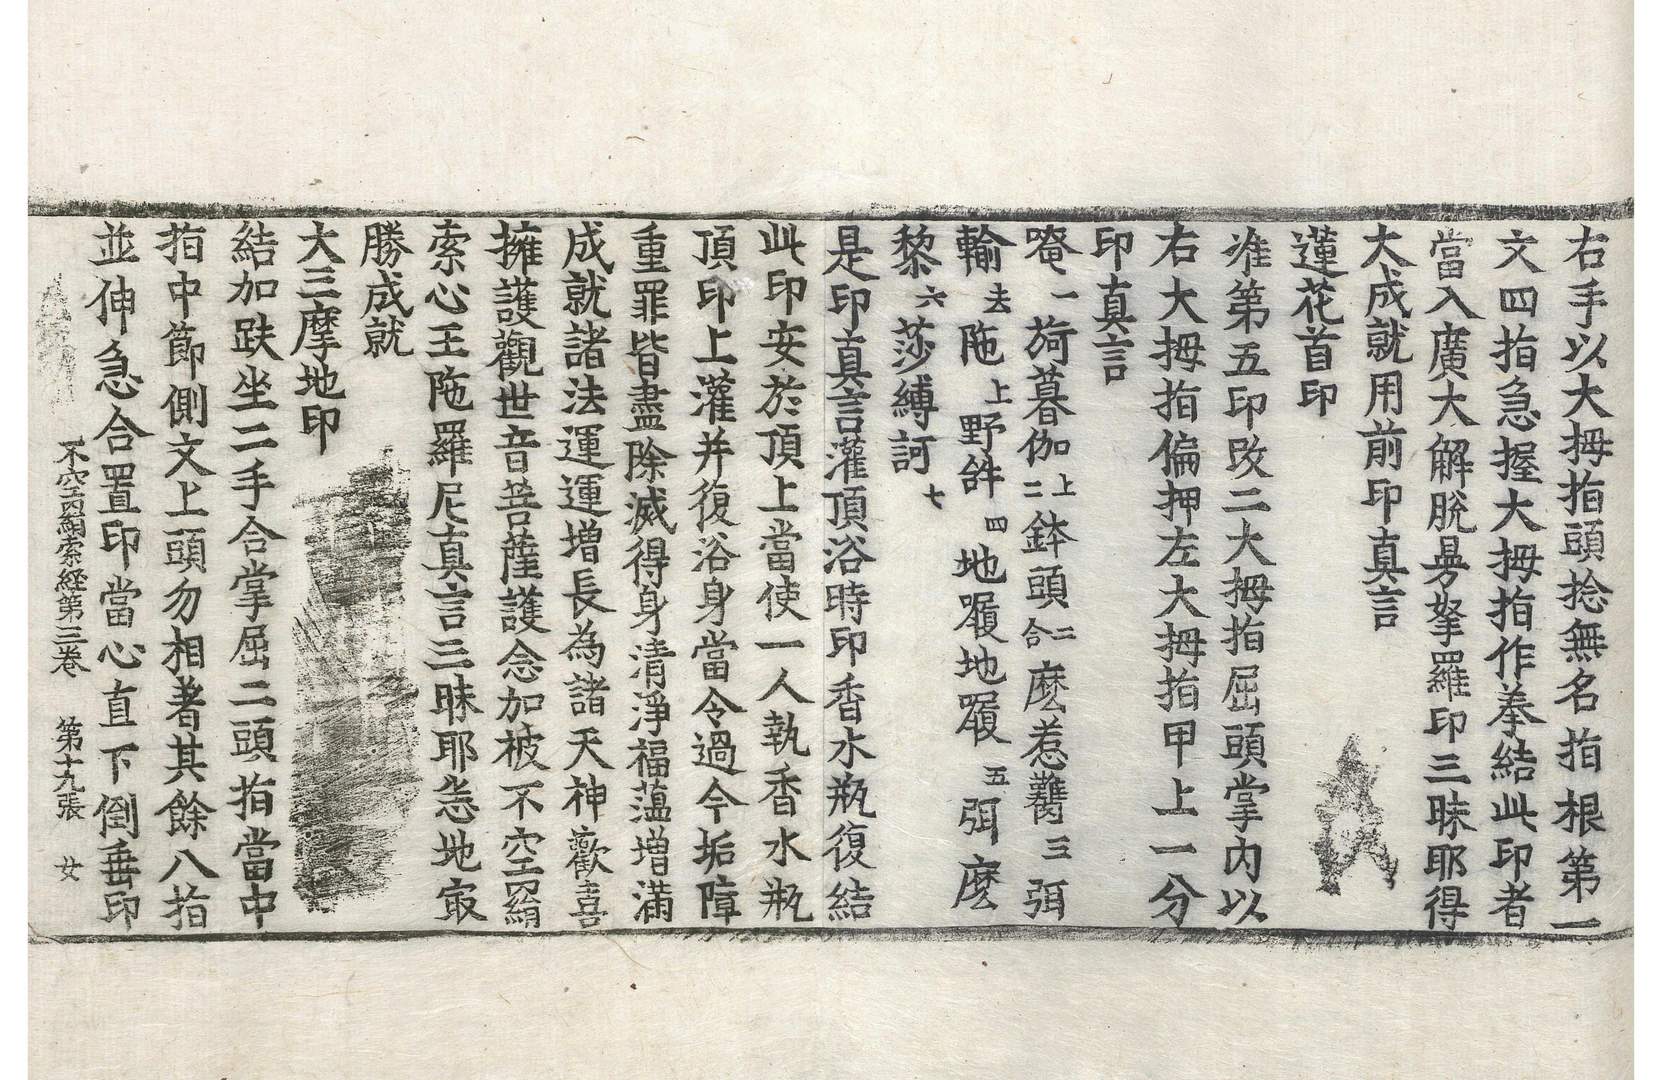 右手以大拇指頭捻無名指根第一
文四指急握大拇指作拳結此印者
當入廣大解脫㝵拏羅印三昧耶得
大成就用前印真言
蓮花首印
准第五印改二大拇指屈頭掌內以
右大拇指偏押左大拇指甲上一分
印真言
唵一旖暮伽上二鉢頭二合麽惹䕷三弭
輸去陁上野𤙖四地𡳐地𡳐五弭麽
黎六莎縛訶七
是印真言灌頂浴時印香水瓶復結
此印安於頂上當使一人執香水瓶
頂印上灌并復浴身當令過今垢障
重罪皆盡除滅得身清淨福蘊增滿
成就諸法運運增長為諸天神歡喜
擁護觀世音菩薩護念加被不空羂
索心王陁羅尼真言三昧耶㤀地㝡
勝成就
大三摩地印
結加趺坐二手合掌屈二頭指當中
指中節側文上頭勿相著其餘八指
並伸急合置印當心直下倒垂印
不空羂索経第三卷 第十九張 女